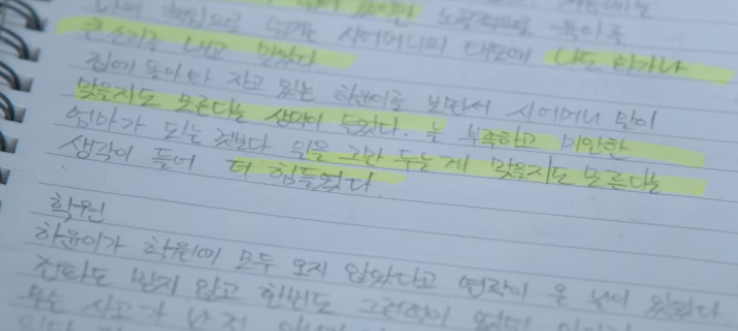 나의 책임으로 시어머니의 태도에 나도 화가나
큰소리를 내고 말았다.
집에 돌아와 자고 있는 하윤이를 보면서 시어머니 말이
맞을지도 모른다는 생각이 들었다. 늘 부족하고 미안한
엄마가 되는 것보다 일을 그만 두는 게 맞을지도 모른다는
생각이 들어 더 힘들었다.
학원
하윤이가 학원에 모두 오지 않았다고 연락이 온 날이 있었다
전화도 받지 않고 한번도 그런적이 없었던
사고가 난 건